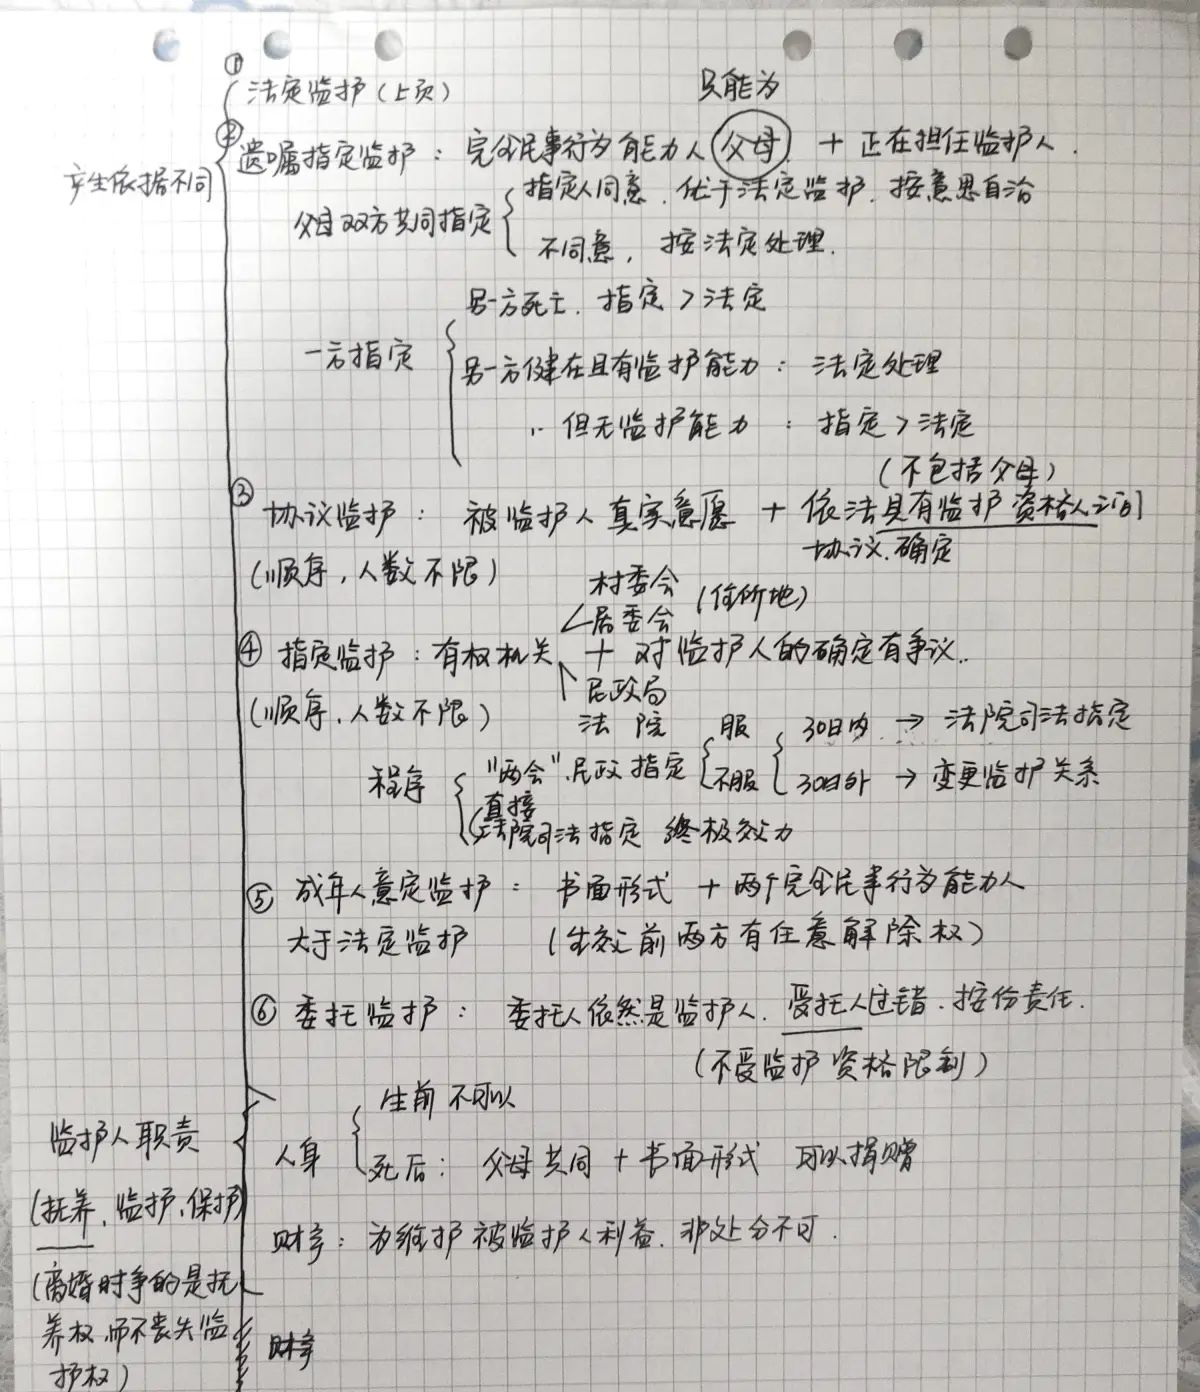 产生依据不同
① 法定监护(上页)
只能为
② 遗嘱指定监护：完全民事行为能力人 父母 + 正在担任监护人.
父母双方共同指定
指定人同意.优于法定监护.按意思自治
不同意,按法定处理.
一方指定
另一方死亡.指定>法定
另一方健在且有监护能力：法定处理
〃 但无监护能力：指定>法定
(不包括父母)
③ 协议监护：被监护人真实意愿 + 依法具有监护资格人之间
协议.确定
(顺序,人数不限)
村委会
居委会 (住所地)
④ 指定监护：有权机关 + 对监护人的确定有争议..
民政局
法院
(顺序.人数不限)
程序
"两会".民政指定
服
不服
30日内 → 法院司法指定
30日外 → 变更监护关系
直接
法院司法指定 终极效力
⑤ 成年人意定监护：书面形式 + 两个完全民事行为能力人
大于法定监护 (生效前两方有任意解除权)
⑥ 委托监护：委托人依然是监护人.受托人过错.按份责任.
(不受监护资格限制)
监护人职责
(抚养,监护,保护)
(离婚时争的是抚
养权.而不丧失监
护权)
人身
生前不可以
死后：父母共同 + 书面形式 可以捐赠
财产：为维护被监护人利益.非处分不可.
财产